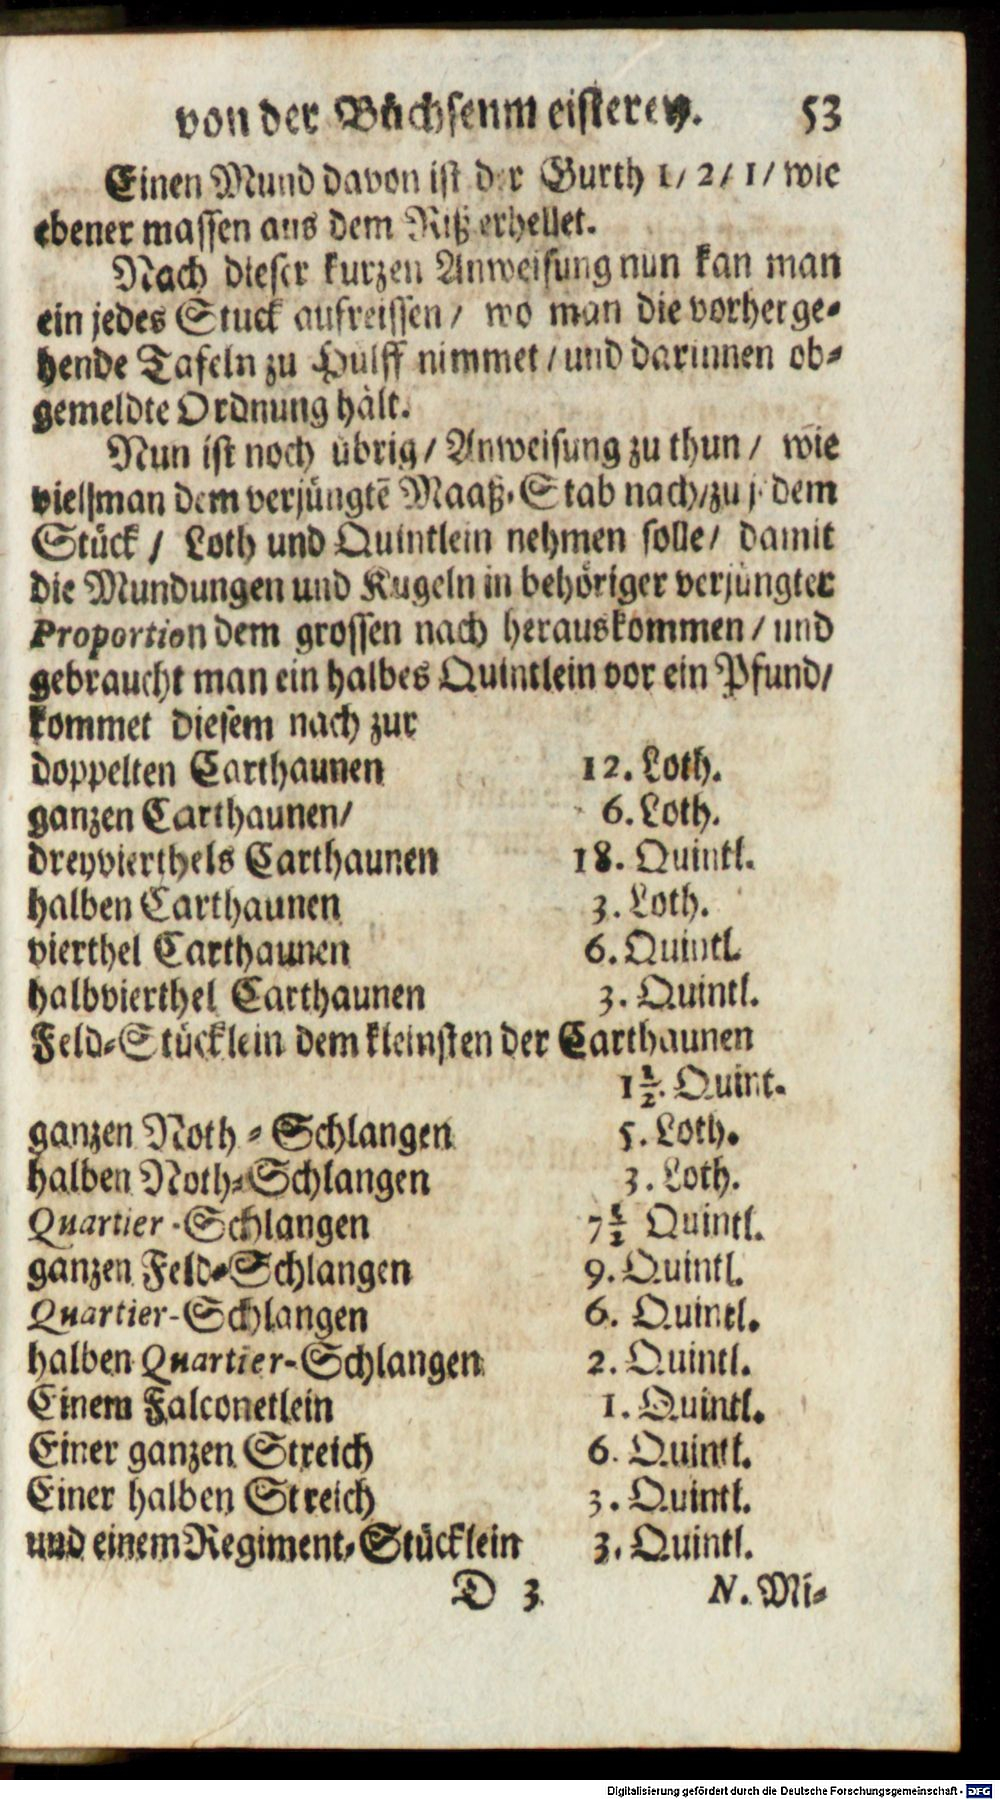 von der Büchsenmeisterey. 53
Einen Mund davon ist der Gurth 1/2/1/ wie
ebener massen aus dem Riß erhellet.
Nach dieser kurzen Anweisung nun kan man
ein jedes Stuck aufreissen / wo man die vorherge-
hende Tafeln zu Hülff nimmet / und darinnen ob-
gemeldte Ordnung hält.
Nun ist noch übrig / Anweisung zu thun / wie
viel man dem verjüngtē Maaß-Stab nach/zu jedem
Stück / Loth und Quintlein nehmen solle / damit
die Mundungen und Kugeln in behöriger verjüngter
Proportion dem grossen nach herauskommen / und
gebraucht man ein halbes Quintlein vor ein Pfund/
kommet diesem nach zur
doppelten Carthaunen 12. Loth.
ganzen Carthaunen/ 6. Loth.
dreyvierthels Carthaunen 18. Quintl.
halben Carthaunen 3. Loth.
vierthel Carthaunen 6. Quintl.
halbvierthel Carthaunen 3. Quintl.
Feld-Stücklein dem kleinsten der Carthaunen
1½. Quint.
ganzen Noth-Schlangen 5. Loth.
halben Noth-Schlangen 3. Loth.
Quartier-Schlangen 7½ Quintl.
ganzen Feld-Schlangen 9. Quintl.
Quartier-Schlangen 6. Quintl.
halben Quartier-Schlangen 2. Quintl.
Einem Falconetlein 1. Quintl.
Einer ganzen Streich 6. Quintl.
Einer halben Streich 3. Quintl.
und einem Regiment-Stücklein 3. Quintl.
D 3 N. Mi-
Digitalisierung gefördert durch die Deutsche Forschungsgemeinschaft - DFG